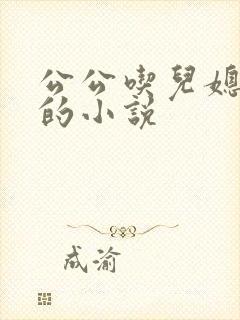 公公喫兒媳
的小說
成渝